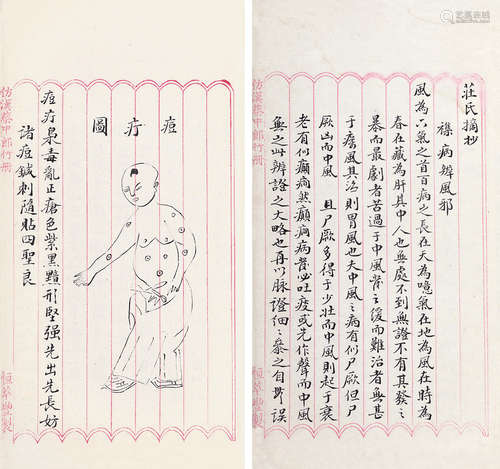 莊氏摘抄
襍病辨風邪
風為六氣之首百病之長在天為噫氣在地為風在時為
春在藏為肝其中人也無處不到無證不有其發之
暴而最劇者過于中風之緩而難治者無甚
于癘風其則冒風也中風之病有似尸厥但尸
厥而中風且尸厥多得于少壯而中風則起于衰
老有似癲癇然癲癇病發必吐痰或先作聲而中風
無之此辨證之大略也再以脉證細細參之自無誤
仿漢蔡中郎竹冊
痘疔圖
痘疔最毒亂正瘡色紫黑黯形堅強先出先長妨
諸痘鍼刺隨貼四聖良
仿漢蔡中郎竹冊